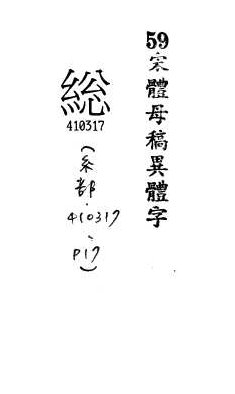 59宋體母稿異體字
総
410317
(糸部.
410317
、
P17)